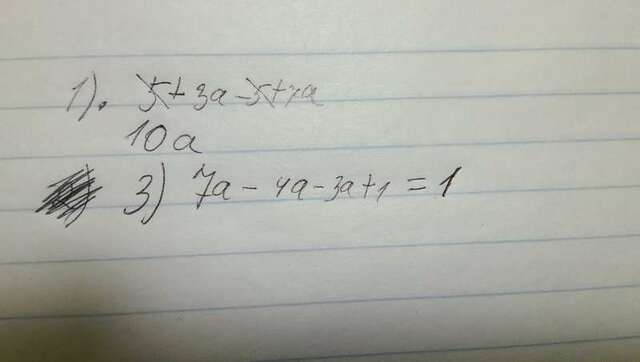 1). 5+3a-5+7a
10a
3) 7a-4a-3a+1=1